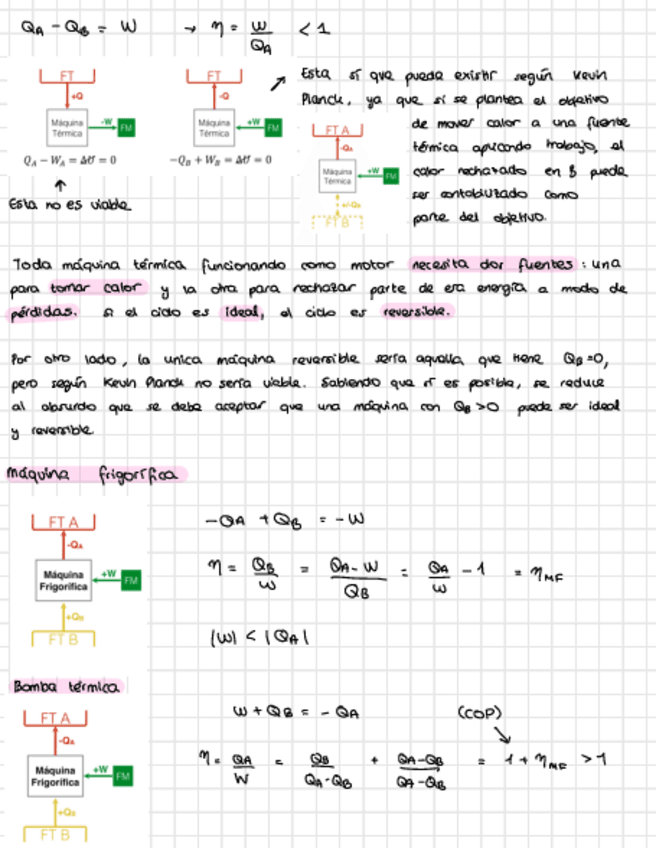 QA - QB = W → η = W/QA < 1
FT
+Q
Máquina Térmica
-W
FM
QA − WA = ΔU = 0
↑
Esta no es viable
FT
-Q
Máquina Térmica
+W
FM
−QB + WB = ΔU = 0
Esta sí que puede existir según Kevin
Planck, ya que si se plantea el objetivo
de mover calor a una fuente
térmica aplicando trabajo, el
calor rechazado en B puede
ser contabilizado como
parte del objetivo.
FT A
-QA
Máquina Térmica
+W
FM
+/-QB
FT B
Toda máquina térmica funcionando como motor necesita dos fuentes: una
para tomar calor y la otra para rechazar parte de esa energía a modo de
pérdidas. Si el ciclo es ideal, el ciclo es reversible.
Por otro lado, la unica máquina reversible sería aquella que tiene QB=0,
pero según Kevin Planck no sería viable. Sabiendo que sí es posible, se reduce
al absurdo que se debe aceptar que una máquina con QB>0 puede ser ideal
y reversible.
máquina frigorífica
FT A
-QA
Máquina Frigorífica
+W
FM
+QB
FT B
-QA + QB = -W
η = QB/W = QA-W/QB = QA/W - 1 = ηMF
|W| < |QA|
Bomba térmica
FT A
-QA
Máquina Frigorífica
+W
FM
+QB
FT B
W + QB = - QA
(COP)
η = QA/W = QB/QA-QB + QA-QB/QA-QB = 1 + ηMF > 1